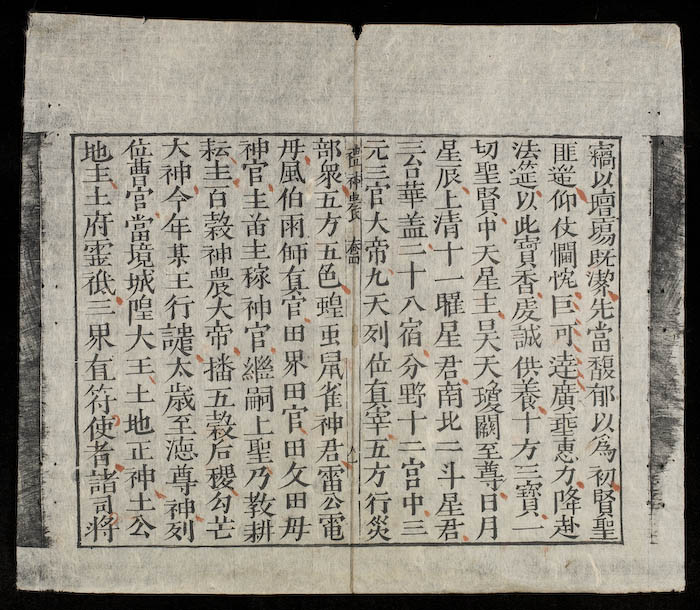 竊以壇塲既潔先當馥郁以爲初賢聖
匪遥仰仗悃忱巨可達廣垂惠力降赴
法筵以此寳香䖍誠供養十方三寳一
切聖賢中天星主昊天瓊闕至尊日月
星辰上清十一曜星君南北二斗星君
三台華盖二十八宿分野十二宫中三
元三官大帝九天列位真宰五方行災
禮神農 卷四
部衆五方五色蝗虫鼠雀神君雷公電
母風伯雨師真官田界田官田父田母
神官主苗主稼神官繼嗣上聖乃敎耕
耘主百穀神農大帝播五穀后稷勾芒
大神今年某王行譴太歲至德尊神列
位曹官當境城隍大王土地正神土公
地主土府霊祇三界直符使者諸司將